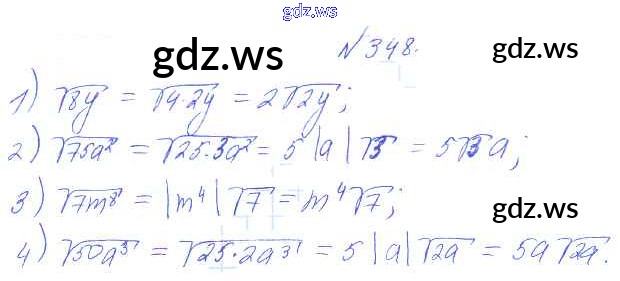 gdz.ws
gdz.ws gdz.ws
№348.
1) √8y = √4·2y = 2√2y;
2) √75a² = √25·3a² = 5|a|√3 = 5√3a;
3) √7m⁸ = |m⁴|√7 = m⁴√7;
gdz.ws gdz.ws
4) √50a³ = √25·2a³ = 5|a|√2a = 5a√2a.